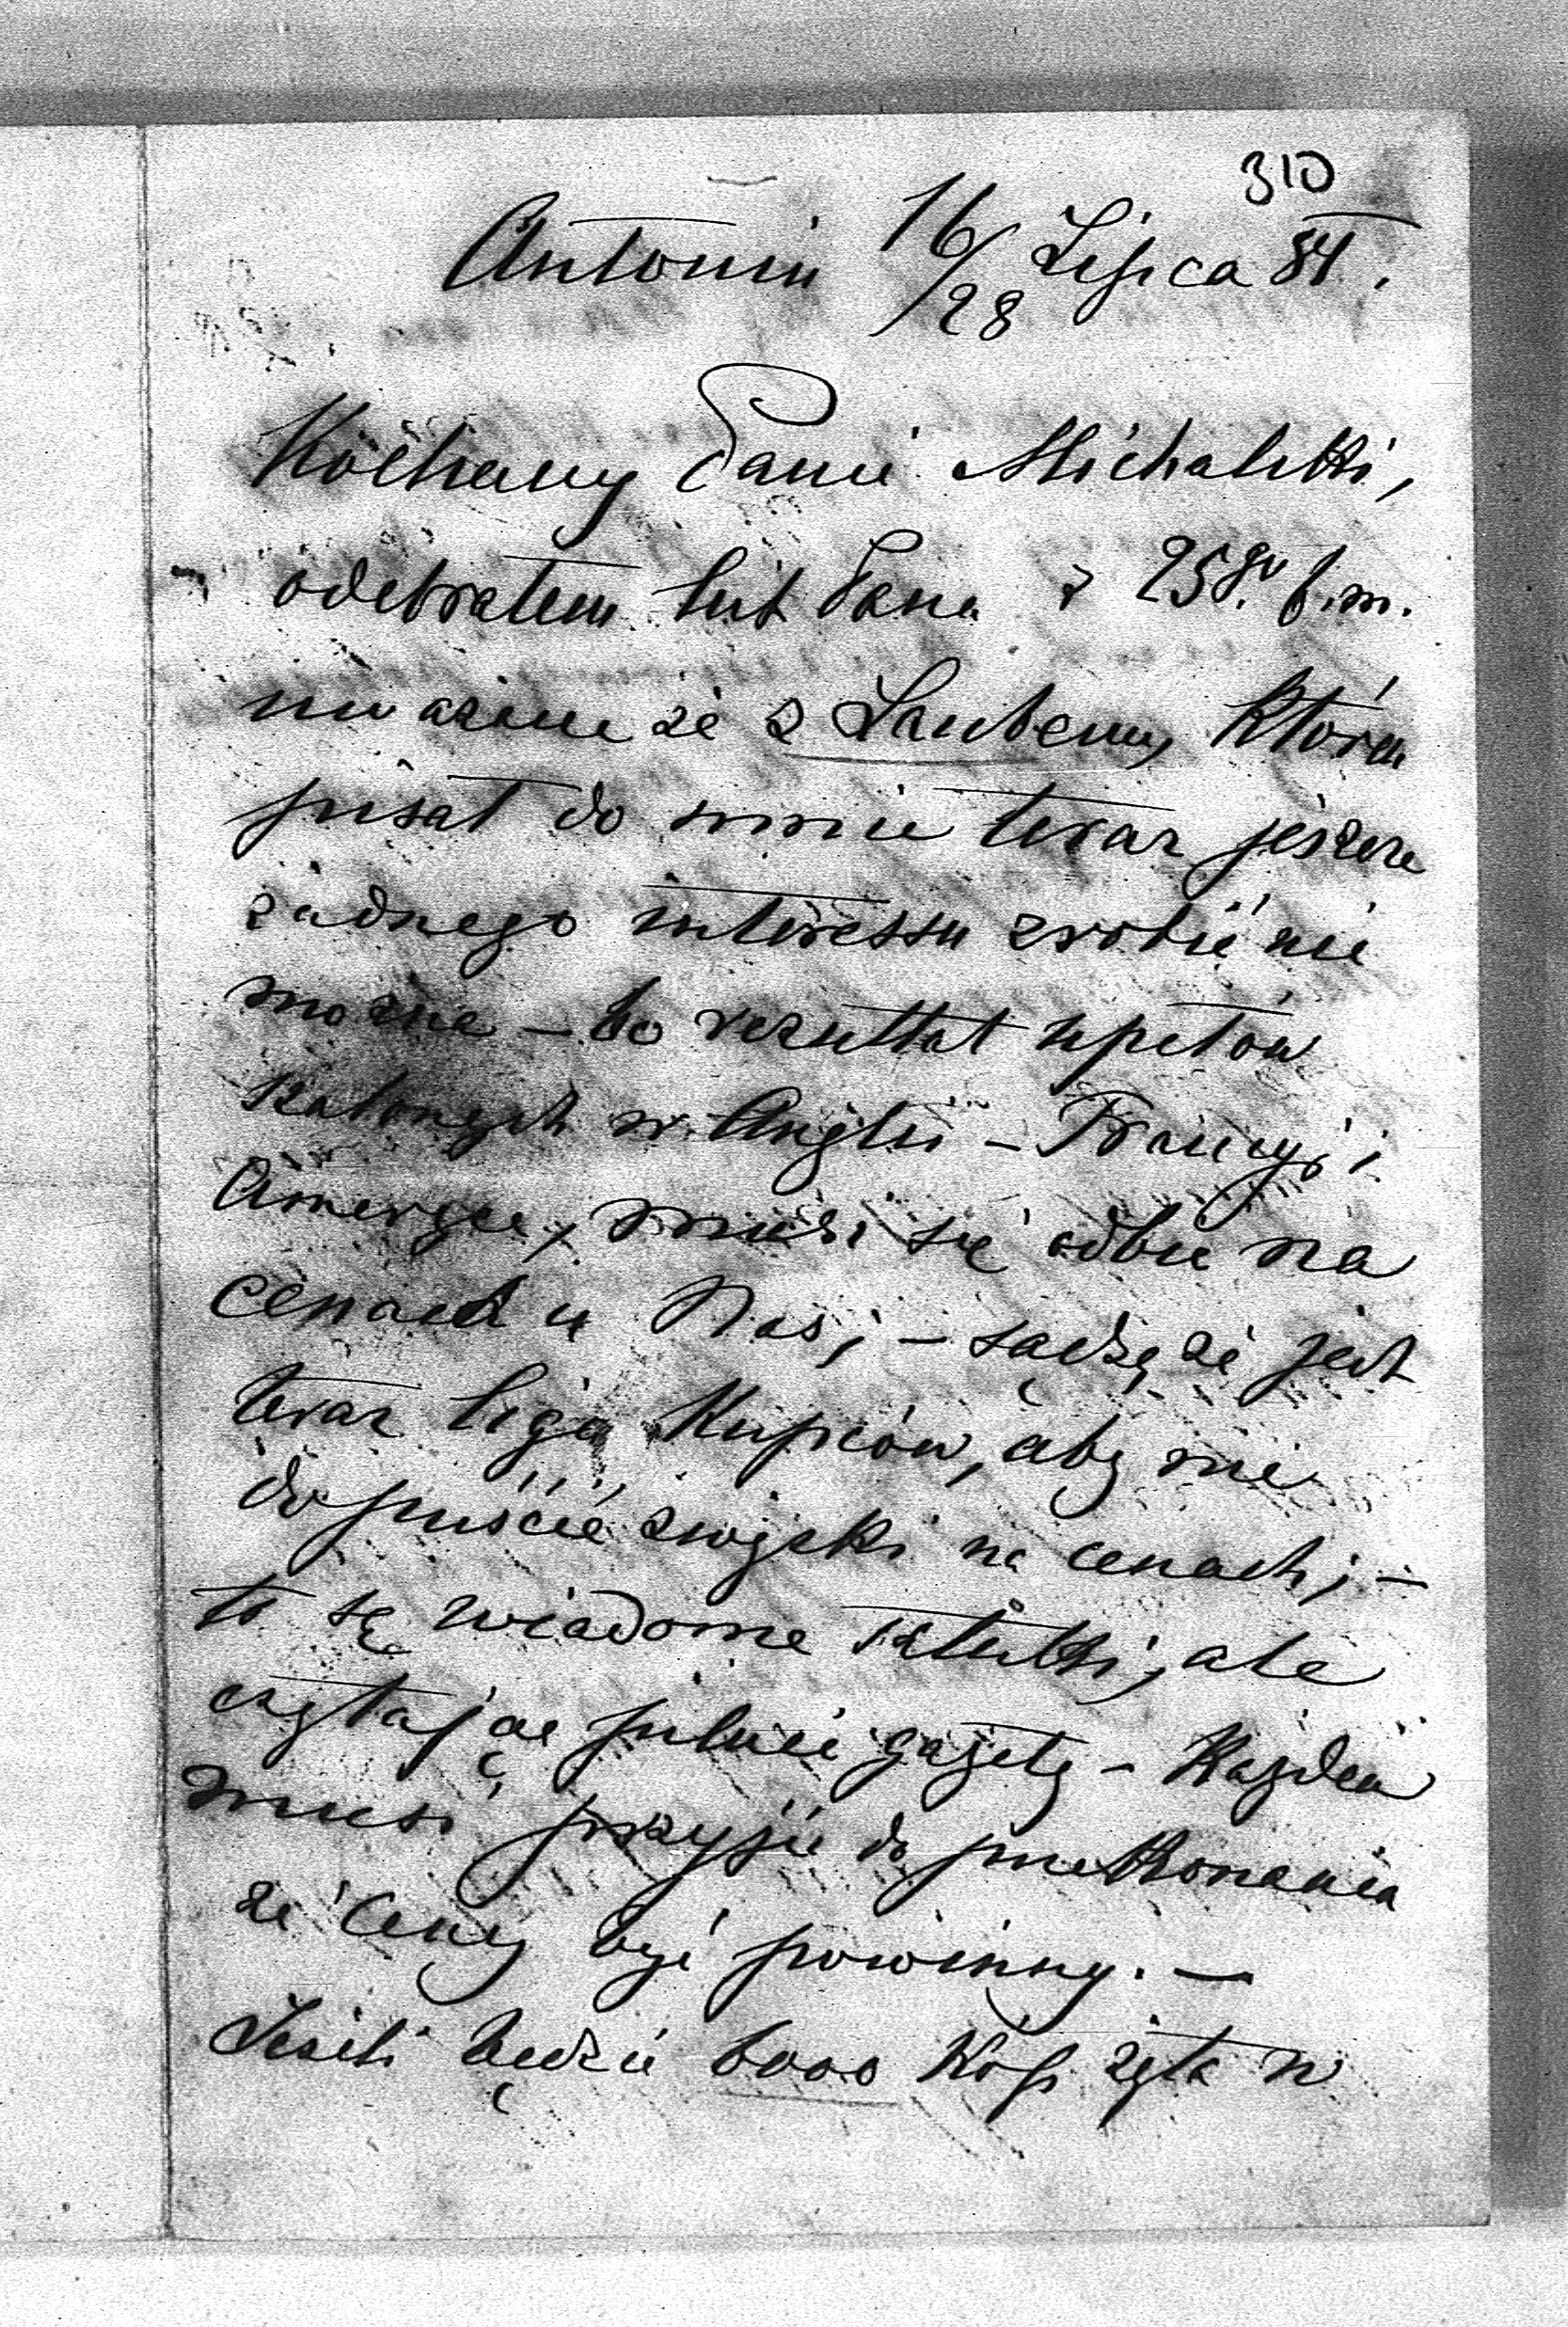 310
Antonin 16/28 Lipca 84.
Kochany Panie Michalski,
odebrałem list Pana z 25go b.m.
uważam że z Laubem, który
pisał do mnie teraz jeszcze
żadnego interessu zrobić nie
można – bo rezultat upałów
w Anglii – Francyi i
Ameryce, musi się odbić na
cenach u Nas; – sądzę że jest
teraz liga Kupców, aby nie
dopuścić zwyżki na cenach; –
to są wiadome sztuki, ale
czytając pilnie gazety – Każden
musi przyjść do przekonania
że ceny być powinny. –
Jeżeli będzie 6000 Kóp żyta w